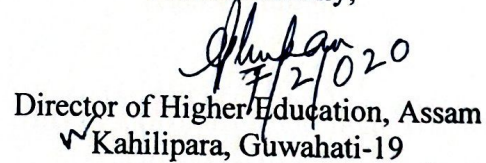 7/2/2020
Director of Higher Education, Assam
Kahilipara, Guwahati-19